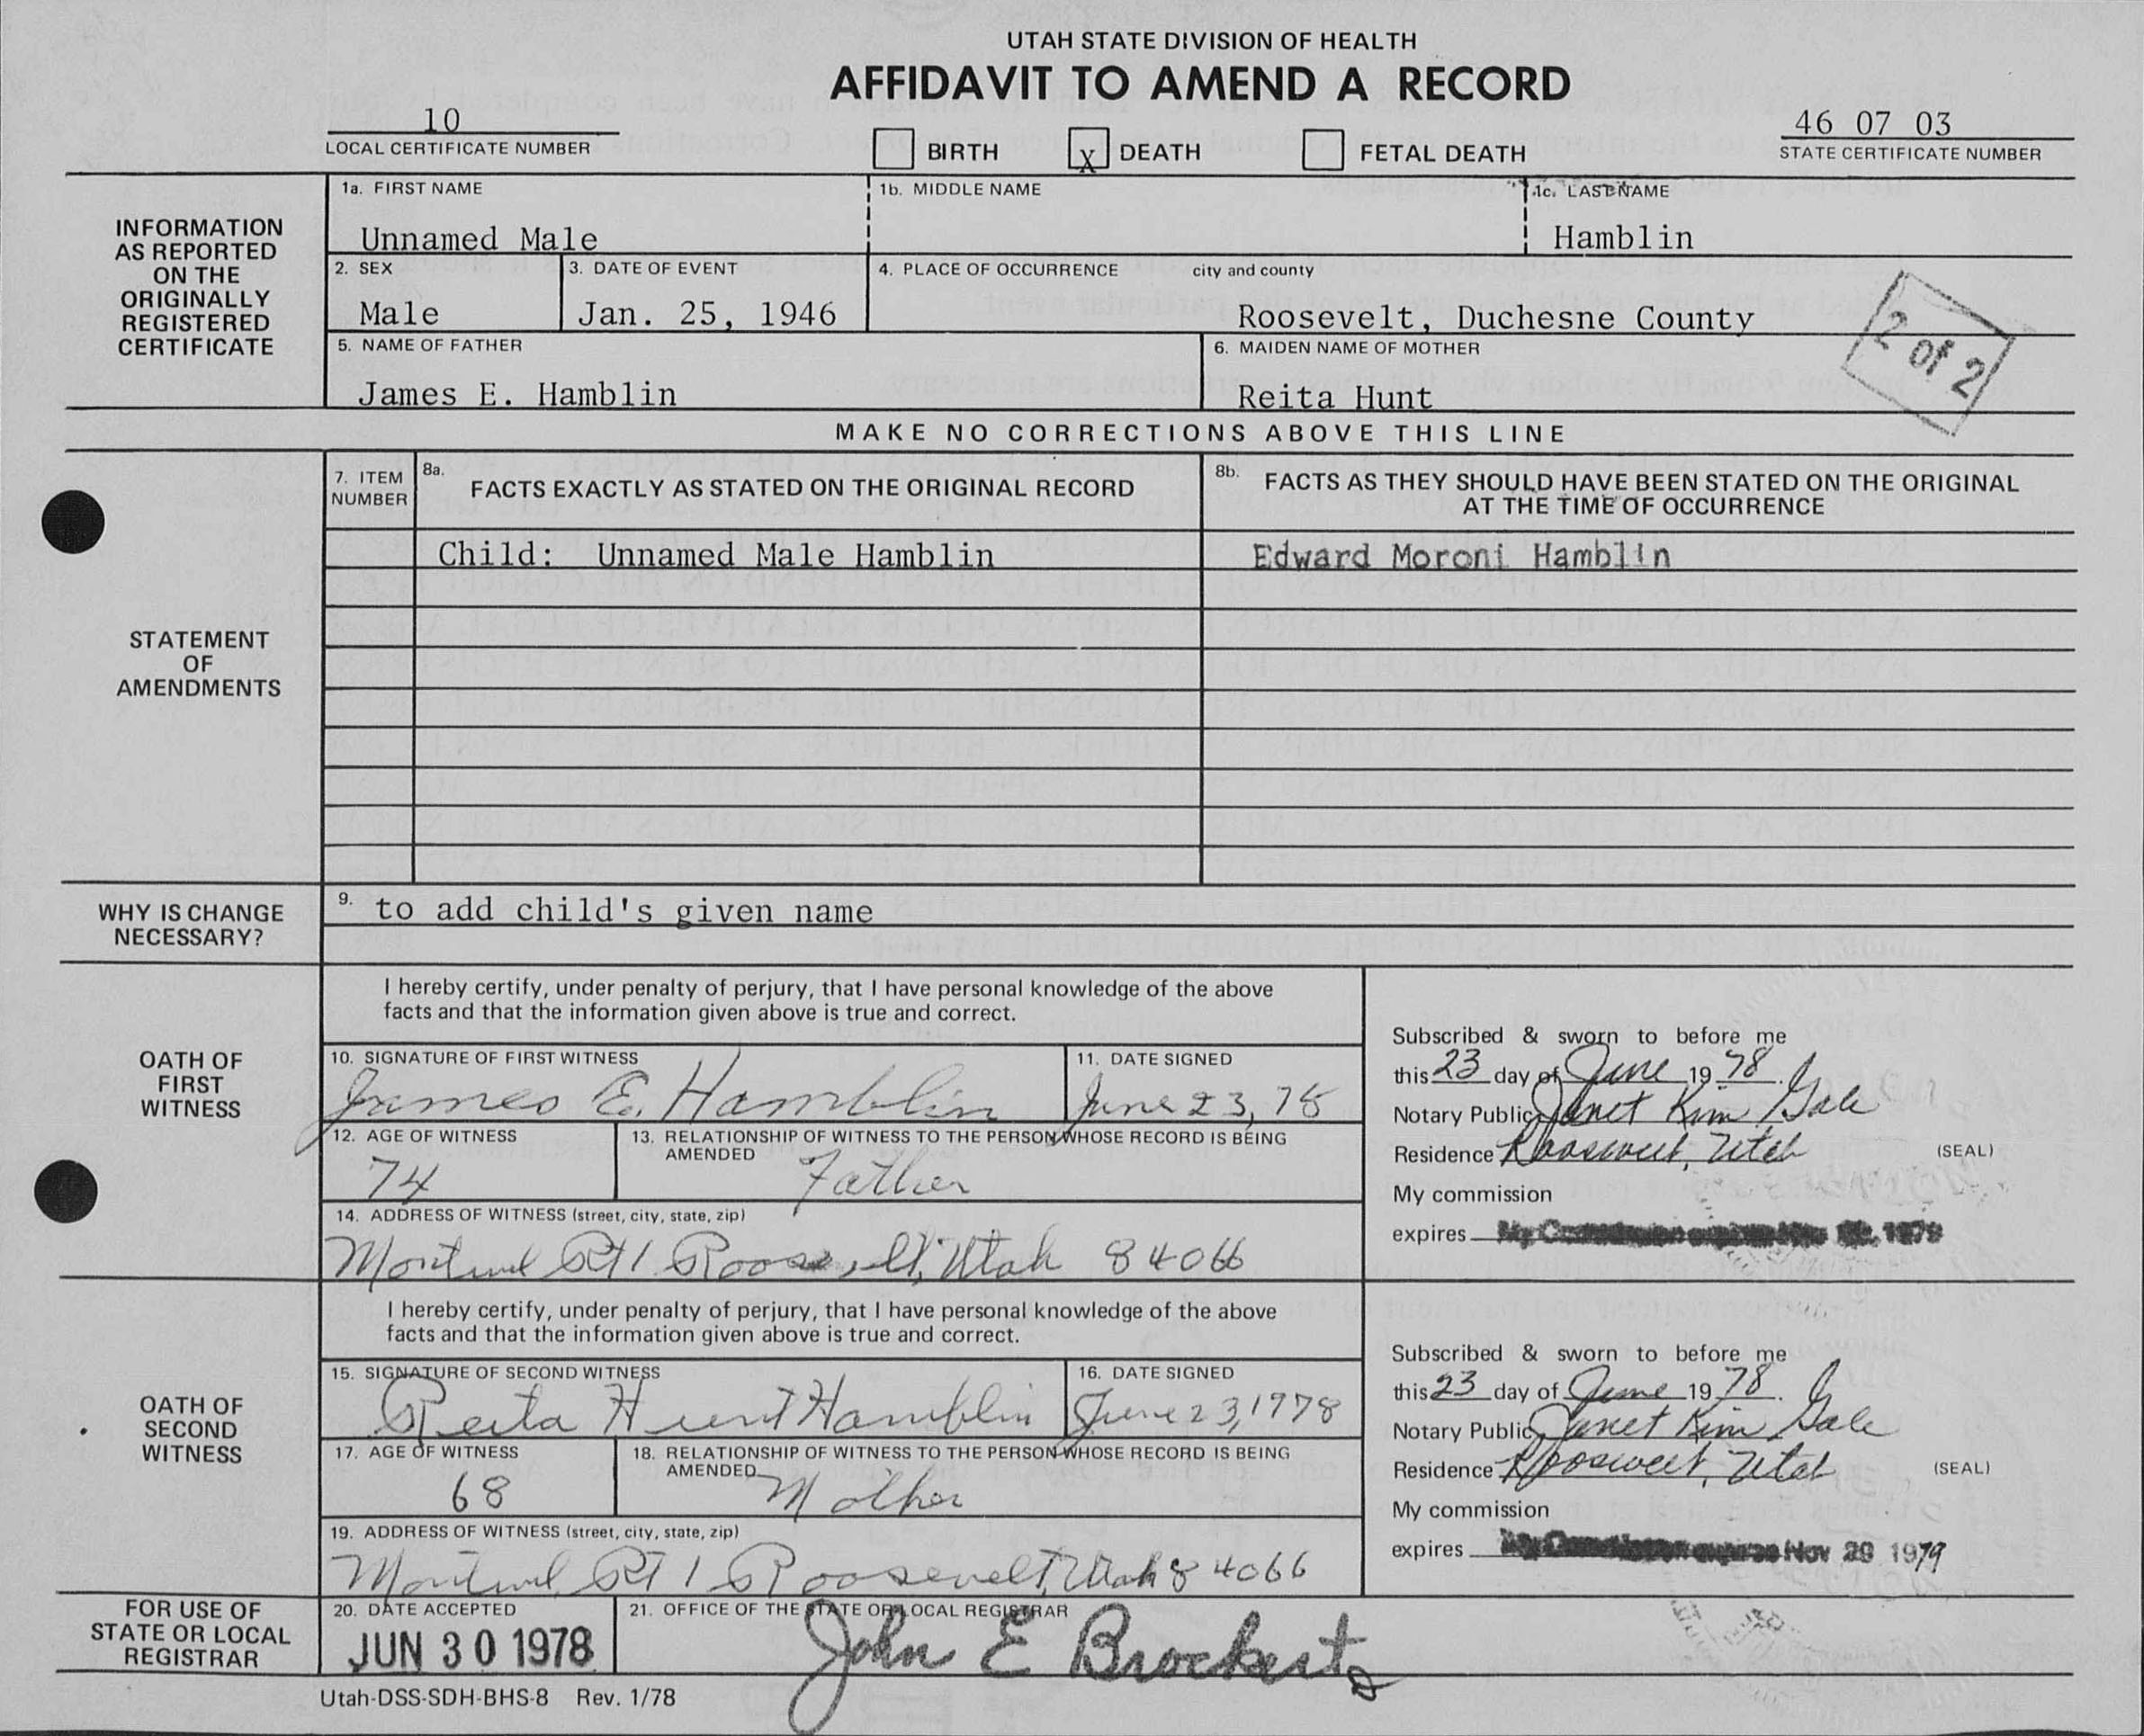 UTAH STATE DIVISION OF HEALTH
AFFIDAVIT TO AMEND A RECORD
10
LOCAL CERTIFICATE NUMBER
BIRTH
X DEATH
FETAL DEATH
46 07 03
STATE CERTIFICATE NUMBER
INFORMATION
AS REPORTED
ON THE
ORIGINALLY
REGISTERED
CERTIFICATE
1a. FIRST NAME
Unnamed Male
1b. MIDDLE NAME
1c. LAST NAME
Hamblin
2. SEX
Male
3. DATE OF EVENT
Jan. 25, 1946
4. PLACE OF OCCURRENCE city and county
Roosevelt, Duchesne County
2 of 2
5. NAME OF FATHER
James E. Hamblin
6. MAIDEN NAME OF MOTHER
Reita Hunt
MAKE NO CORRECTIONS ABOVE THIS LINE
STATEMENT
OF
AMENDMENTS
7. ITEM
NUMBER
8a. FACTS EXACTLY AS STATED ON THE ORIGINAL RECORD
8b. FACTS AS THEY SHOULD HAVE BEEN STATED ON THE ORIGINAL
AT THE TIME OF OCCURRENCE
Child: Unnamed Male Hamblin
Edward Moroni Hamblin
WHY IS CHANGE
NECESSARY?
9. to add child's given name
OATH OF
FIRST
WITNESS
I hereby certify, under penalty of perjury, that I have personal knowledge of the above
facts and that the information given above is true and correct.
10. SIGNATURE OF FIRST WITNESS
James E. Hamblin
11. DATE SIGNED
June 23, 78
12. AGE OF WITNESS
74
13. RELATIONSHIP OF WITNESS TO THE PERSON WHOSE RECORD IS BEING
AMENDED
Father
14. ADDRESS OF WITNESS (street, city, state, zip)
Rt 1 Roosevelt, Utah 84066
Subscribed & sworn to before me
this 23 day of June 19 78.
Notary Public Janet Kim Gale
Residence Roosevelt, Utah (SEAL)
My commission
expires 1979
OATH OF
SECOND
WITNESS
I hereby certify, under penalty of perjury, that I have personal knowledge of the above
facts and that the information given above is true and correct.
15. SIGNATURE OF SECOND WITNESS
Reita Hunt Hamblin
16. DATE SIGNED
June 23, 1978
17. AGE OF WITNESS
68
18. RELATIONSHIP OF WITNESS TO THE PERSON WHOSE RECORD IS BEING
AMENDED
Mother
19. ADDRESS OF WITNESS (street, city, state, zip)
Rt 1 Roosevelt, Utah 84066
Subscribed & sworn to before me
this 23 day of June 19 78.
Notary Public Janet Kim Gale
Residence Roosevelt, Utah (SEAL)
My commission
expires My Commission expires Nov 29 1979
FOR USE OF
STATE OR LOCAL
REGISTRAR
20. DATE ACCEPTED
JUN 30 1978
21. OFFICE OF THE STATE OR LOCAL REGISTRAR
John E Brockert
Utah-DSS-SDH-BHS-8 Rev. 1/78